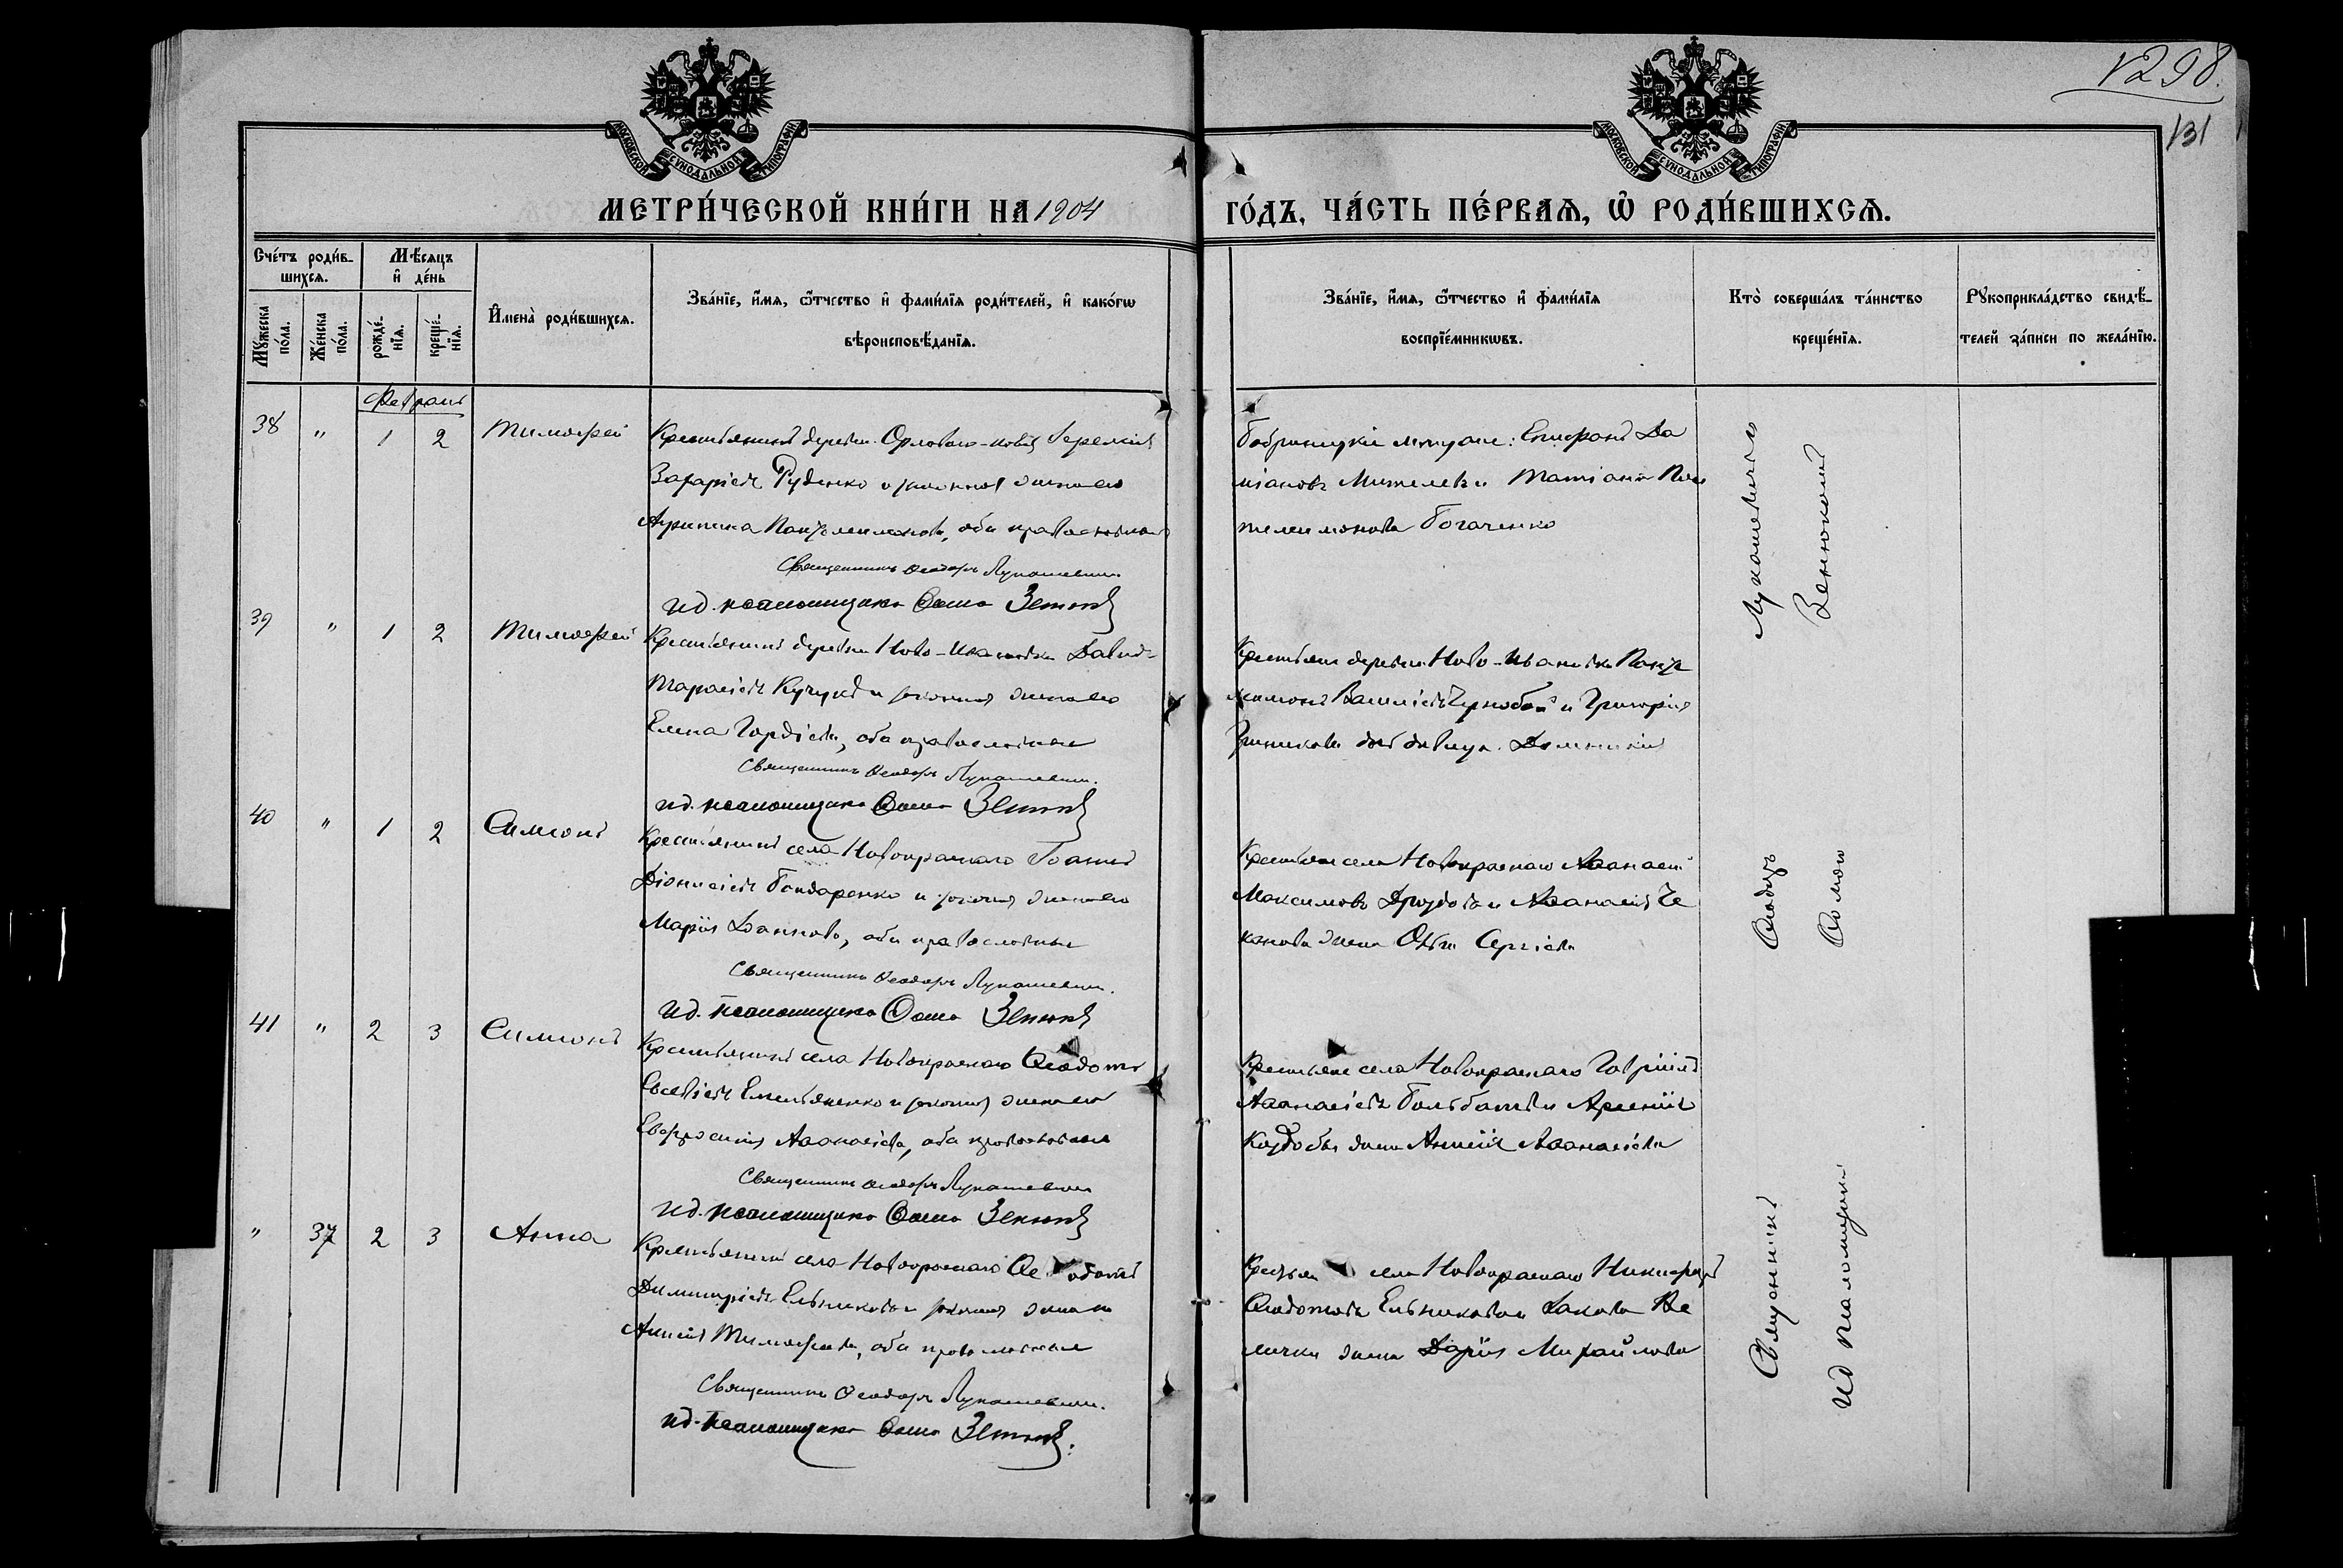 1298.
131
МОСКОВСКОЙ СѴНОДАЛЬНОЙ ТИПОГРАФІИ
МОСКОВСКОЙ СѴНОДАЛЬНОЙ ТИПОГРАФІИ
МЕТРИ́ЧЕСКОЙ КНИ́ГИ НА 1904
ГО́ДЪ, ЧА́СТЬ ПЕ́РВАѦ, Ѡ҆ РОДИ́ВШИХСѦ.
Сче́тъ роди́в-
шихсѧ.
Мѣ́сѧцъ
и҆ де́нь
Мꙋ́жеска
по́ла.
Же́нска
по́ла.
рожде́-
нїѧ.
креще́-
нїѧ.
И҆мена̀ роди́вшихсѧ.
Зва́нїе, и҆́мѧ, ѻ҆́тчество и҆ фами́лїѧ роди́телей, и҆ како́гѡ
вѣроисповѣ́данїѧ.
Зва́нїе, и҆́мѧ, ѻ҆́тчество и҆ фами́лїѧ
воспрїе́мникѡвъ.
Кто̀ соверша́лъ та́инство
креще́нїѧ.
Рꙋкоприкла́дство свидѣ́-
телей за́писи по жела́нїю.
Февраль
38 " 1 2 Тимофей
Крестьянинъ деревни Орловой-
Захаріевъ Руденко и законная жена его
Агрипина Пантелеимонова, оба православные
Священникъ Ѳеодоръ Лукашевичъ.
ид. псаломщика Ѳома Зенюкъ
Бобринецкіе мещане: Епифанъ Да
міановъ и Татіана Пан
телеимонова Богаченко
39 " 1 2 Тимофей
Крестьянинъ деревни Ново-Ивановки Давидъ
Тарасіевъ Кучукъ и законная жена его
Елена Гордіева, оба православные
Священникъ Ѳеодоръ Лукашевичъ.
ид. псаломщика Ѳома Зенюкъ
Крестьяне деревни Ново-Ивановки Панте
леимонъ Василіевъ Чернобай и Григорія
дочь девица Домникія
40 " 1 2 Симеонъ
Крестьянинъ села Новокраснаго Іоаннъ
Діонисіевъ Бондаренко и законная жена его
Марія Іоаннова, оба православные
Священникъ Ѳеодоръ Лукашевичъ.
ид. псаломщика Ѳома Зенюкъ
Крестьяне села Новокраснаго Аѳанасій
Максимовъ Дроздовъ и Аѳанасія Че
канова жена Сергіева
41 " 2 3 Симеонъ
Крестьянинъ села Новокраснаго Ѳеодотъ
Евсевіевъ Емельяненко и законная жена его
Евфросинія Аѳанасіева, оба православные
Священникъ Ѳеодоръ Лукашевичъ
ид. псаломщика Ѳома Зенюкъ
Крестьяне села Новокраснаго Гавріилъ
Аѳанасіевъ и Арсенія
Коздобы жена Анисія Аѳанасіева
" 37 2 3 Анна
Крестьянинъ села Новокраснаго Ѳеодотъ
Димитріевъ Ельниковъ и законная жена его
Анисія Тимофеева, оба православные
Священникъ Ѳеодоръ Лукашевичъ.
ид. псаломщика Ѳома Зенюкъ.
Крестьяне села Новокраснаго Никифоръ
Ѳеодотовъ Ельниковъ и Іакова Ве
лички жена Дарія Михайлова
Священникъ Ѳеодоръ Лукашевичъ
ид псаломщика Ѳома Зенюкомъ